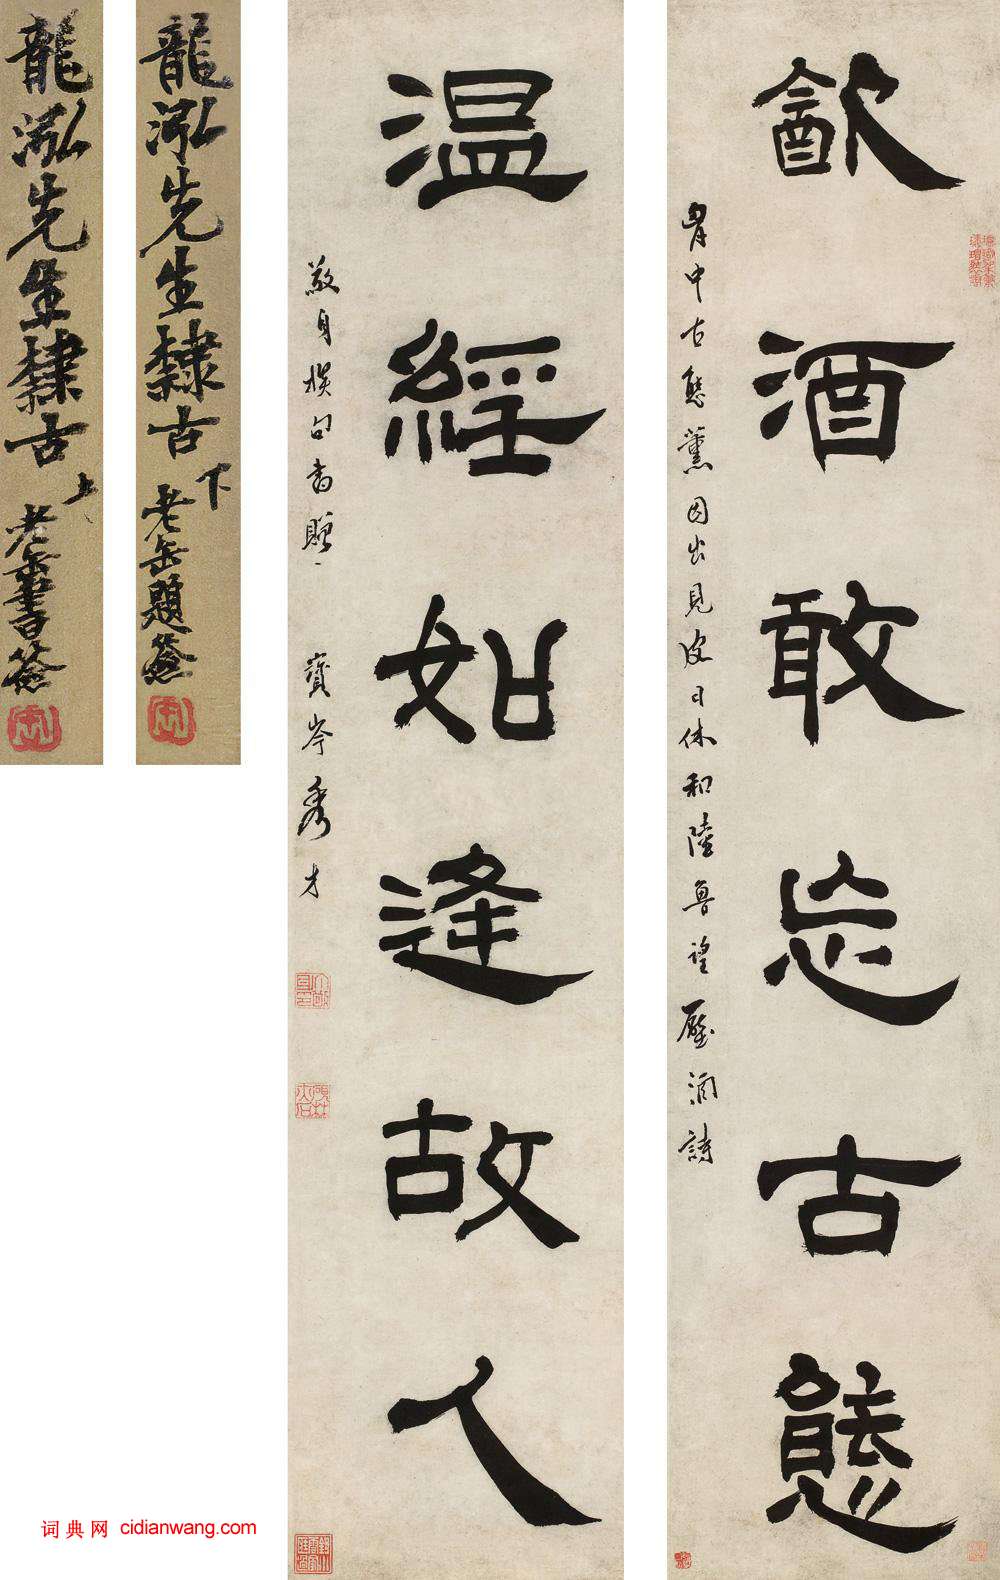 飲酒敢忘古態
胷中古態薰 因出見皮日休和陸魯望壓酒詩
温經如逢故人
敬身 句書贈
寶岑秀才
龍泓先生隸古 下
老缶題簽
龍泓先生隸古 上
老缶書簽
词典网 cidianwang.com